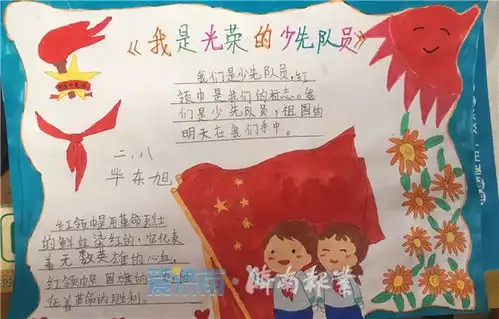 《我是光荣的少先队员》
我们是少先队员,红
领巾是我们的标志。我
们是少先队员,祖国的
明天在我们手中。
二.八
华东旭
红领巾是用革命烈士
的鲜血染红的,它代表
着无数英雄的心血,
红领巾是国旗的
征着革命的胜利。